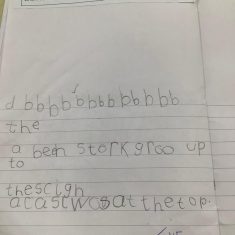 d bbbbbbbbbbbb
the
a been stork groo up
to
thescign
acastwosatthetop.